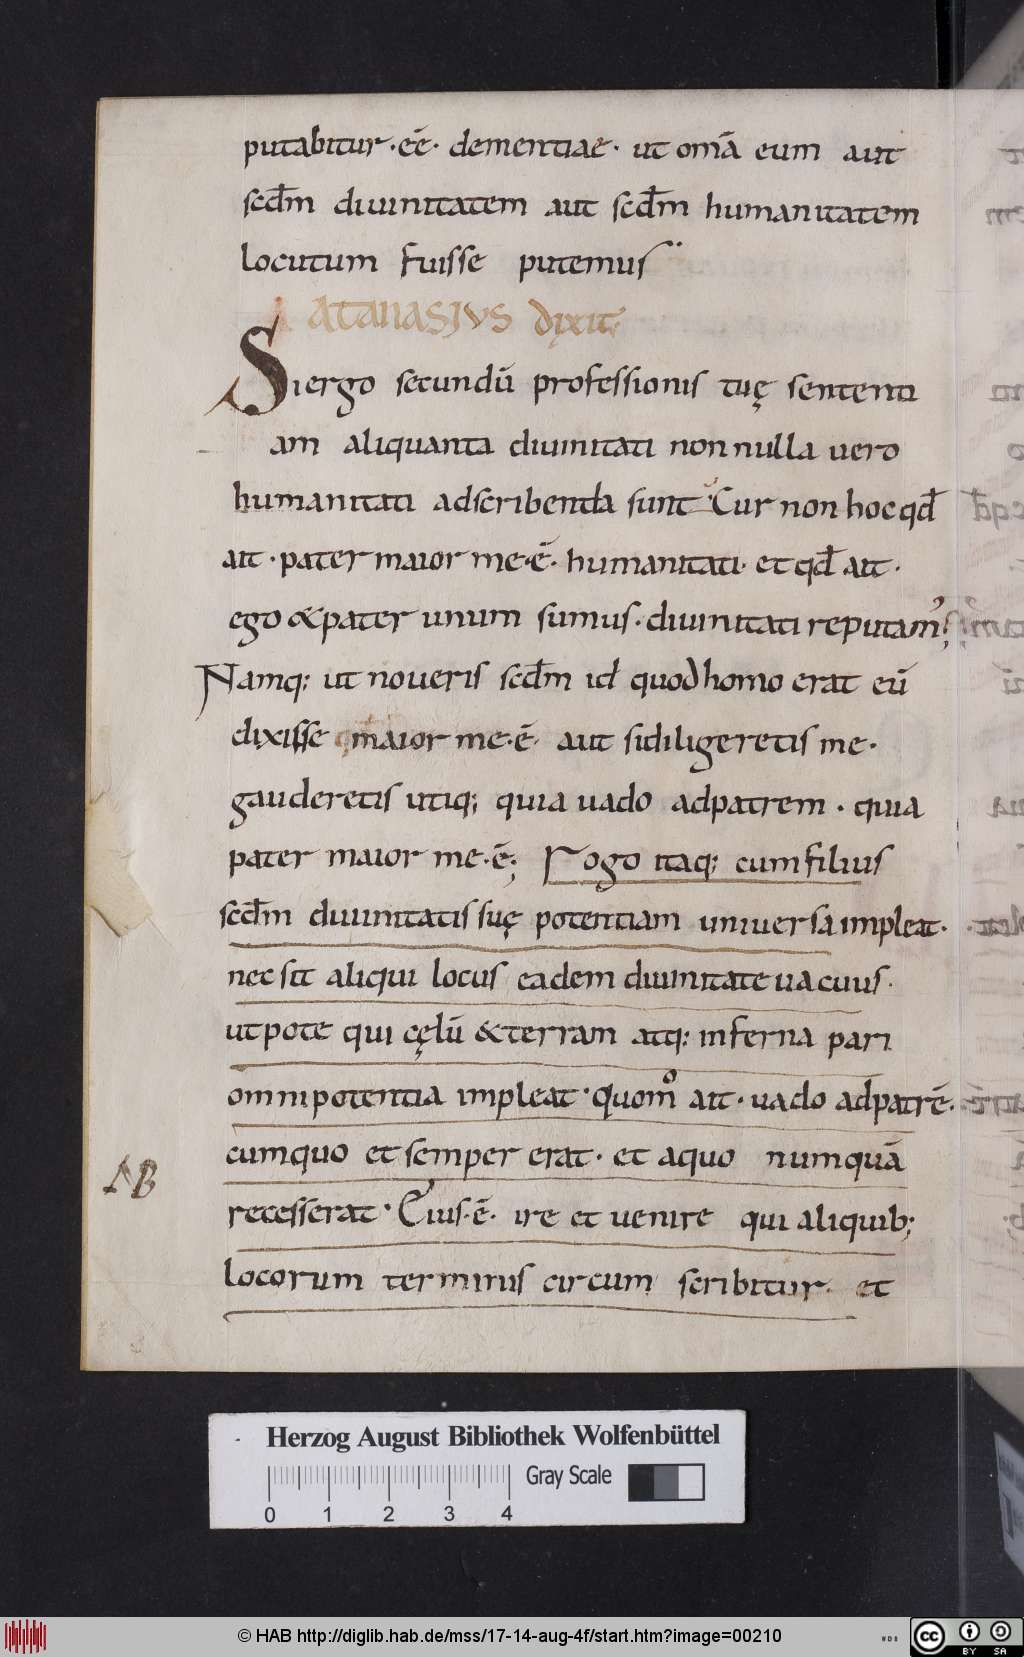 putabitur · eē · dementiae · ut omā eum aut
scđm diuinitatem aut scđm humanitatem
locutum fuisse putemus
ATANASIVS dixit
Si ergo secundū professionis tuę sententi
am aliquanta diuinitati non nulla uero
humanitati adscribenda sunt · Cur non hoc qđ
ait · pater maior me · ē · humanitati · et qđ ait ·
ego & pater unum sumus · diuinitati reputam᾽;
Namq; ut noueris scđm id quod homo erat eū
dixisse maior me · ē · aut si diligeretis me ·
gauderetis utiq; quia uado ad patrem · quia
pater maior me · ē; Rogo itaq; cum filius
scđm diuinitatis suę potentiam uniuersa impleat ·
nec sit aliqui locus eadem diuinitate uacuus ·
utpote qui cęlū & terram atq; inferna pari
omnipotentia impleat · quomͦ ait · uado ad patrē ·
cum quo et semper erat · et a quo numquā
NB
recesserat · Eius · ē · ire et uenire qui aliquib;
locorum terminis circum scribitur · et
Herzog August Bibliothek Wolfenbüttel
Gray Scale
0 1 2 3 4
© HAB http://diglib.hab.de/mss/17-14-aug-4f/start.htm?image=00210
WDB
cc BY SA